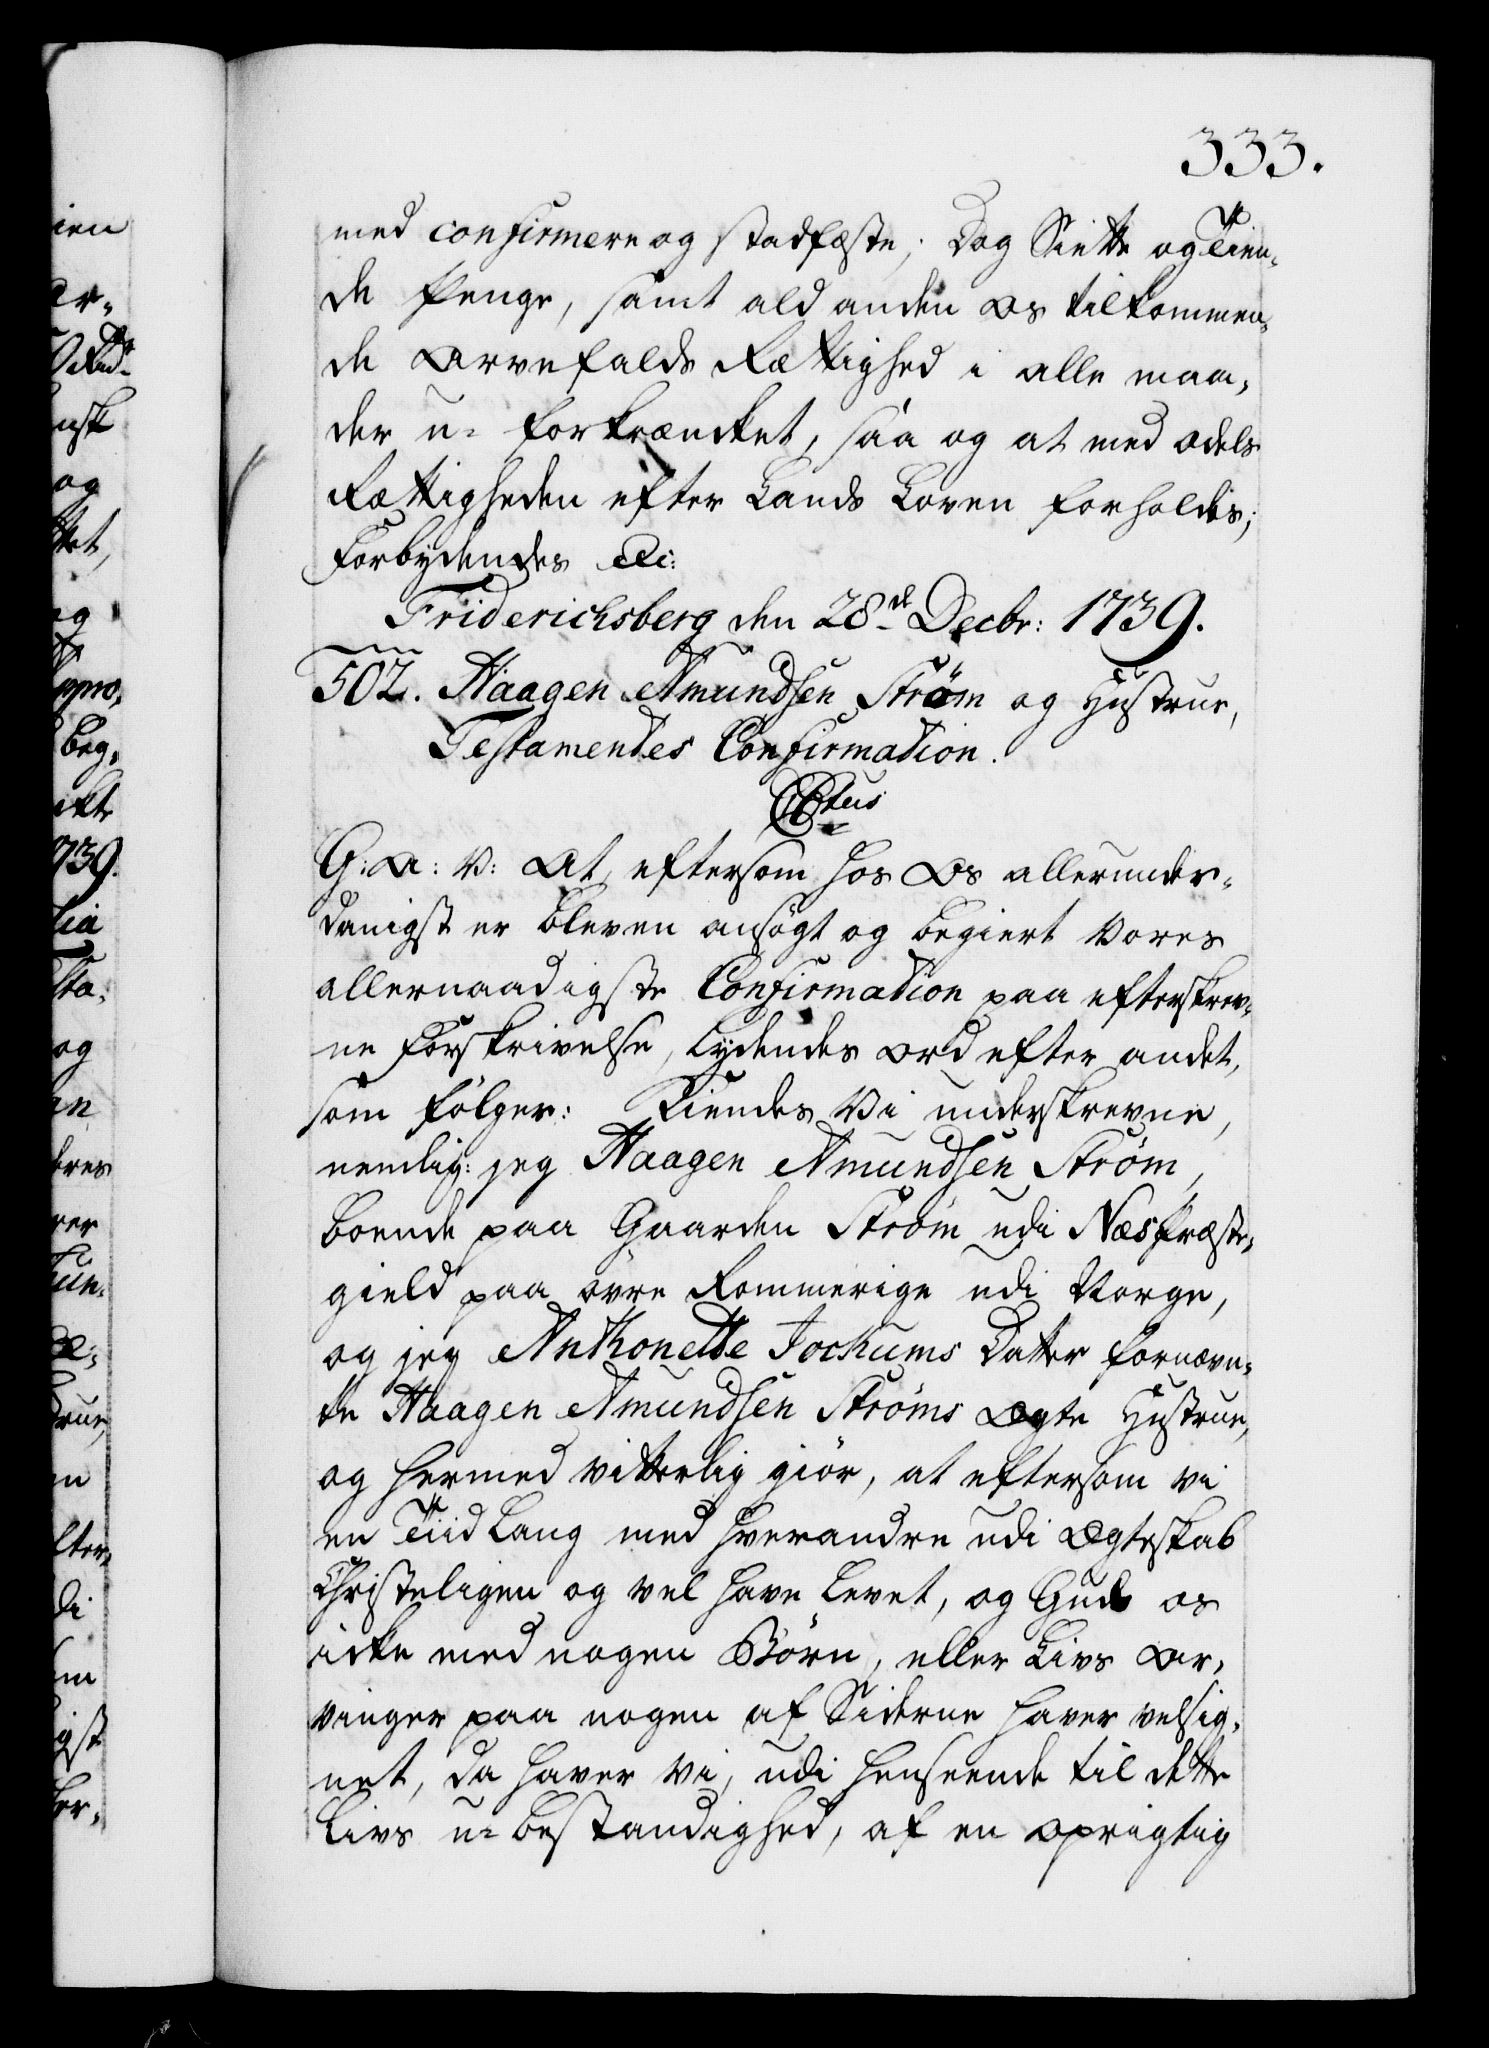 333.
med confirmere og stadfæste; Dog Siette og Tien-
de Penge, samt ald anden Os tilkommen-
de Arvefalds Rettighed i alle maa-
der u- forkrændket, saa og at med Odels
Rettigheden efter Lands Loven forholdes;
Forbydendes &c:
Friderichsberg den 28de Decbr: 1739.
502. Haagen Amundsen Strøm og Hustrue,
Testamentes Confirmation.
C5tus
G: A: V: At, eftersom hos Os allerunder-
danigst er bleven ansøgt og begiert Vores
allernaadigste Confirmation paa efterskrev-
ne Forskrivelse, lydendes Ord efter andet,
som følger: Kiendes Vi underskrevne,
nemlig: jeg Haagen Amundsen Strøm,
boende paa Gaarden Strøm udi Næs Præste-
gield paa øvre Rommerige udi Norge,
og jeg Anthonette Jochums Datter fornævn-
te Haagen Amundsen Strøms Ægte Hustrue,
og hermed vitterlig giør, at eftersom vi
en Tiid lang med hverandre udi Ægteskab
Christeligen og vel have levet, og Gud os
icke med nogen Børn, eller Livs Ar-
vinger paa nogen af Siderne haver velsig-
net, da haver vi, udi henseende til dette
Livs u- bestandighed, af en oprigtig
ien
og
og
beg-
1739.
og